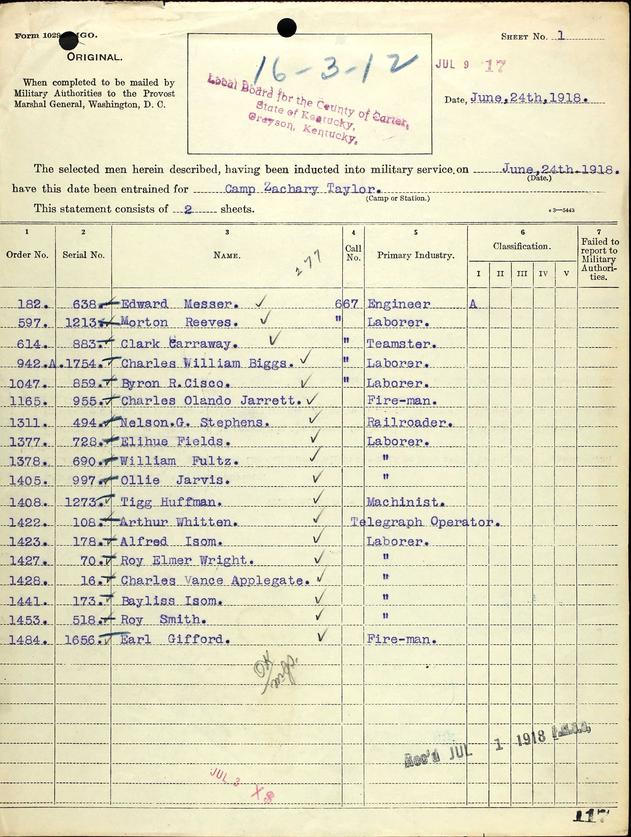 Form 1029 PMGO.
SHEET NO. 1
ORIGINAL.
16-3-12
JUL 9 17
When completed to be mailed by
Military Authorities to the Provost
Marshal General, Washington, D. C.
Local Board for the County of Carter,
State of Kentucky,
Grayson, Kentucky.
Date, June,24th,1918.
The selected men herein described, having been inducted into military service, on June,24th.1918.
(Date.)
have this date been entrained for Camp Zachary Taylor.
(Camp or Station.)
This statement consists of 2 sheets.
1 2 3 4 5 6 7
Order No. Serial No. NAME. Call No. Primary Industry. Classification. Failed to report to Military Authorities.
I II III IV V
277
182. 638. Edward Messer. 667 Engineer A
597. 1213. Morton Reeves. " Laborer.
614. 883. Clark Carraway. " Teamster.
942.A.1754. Charles William Biggs. " Laborer.
1047. 859. Byron R.Cisco. " Laborer.
1165. 955. Charles Olando Jarrett. Fire-man.
1311. 494. Nelson.G. Stephens. Railroader.
1377. 728. Elihue Fields. Laborer.
1378. 690. William Fultz. "
1405. 997. Ollie Jarvis. "
1408. 1273. Tigg Huffman. Machinist.
1422. 108. Arthur Whitten. Telegraph Operator.
1423. 178. Alfred Isom. Laborer.
1427. 70. Roy Elmer Wright. "
1428. 16. Charles Vance Applegate. "
1441. 173. Bayliss Isom. "
1453. 518. Roy Smith. "
1484. 1656. Earl Gifford. Fire-man.
OK
Rec'd JUL 1 1918
JUL 3
117